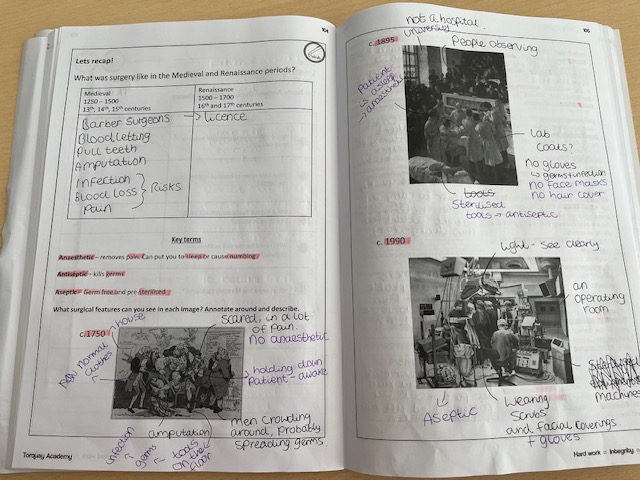 104
Lets recap!
What was surgery like in the Medieval and Renaissance periods?
Medieval
1250 – 1500
13th, 14th, 15th centuries
Renaissance
1500 – 1700
16th and 17th centuries
Barber Surgeons → licence
Bloodletting
Pull teeth
Amputation
Infection
Blood loss } Risks
Pain
Key terms
Anaesthetic – removes pain. Can put you to sleep or cause numbing
Antiseptic – kills germs
Aseptic – Germ free and pre sterilised
What surgical features can you see in each image? Annotate around and describe.
c.1750
house
normal clothes
scared, in a lot
of pain.
no anaesthetic
holding down
Patient - awake
men crowding
around, probably
spreading germs
amputation
tools
on the
floor
germs
infection
Torquay Academy
105
c.1895
not a hospital
university
People observing
Patient
is asleep
→ anaesthetic
Lab
coats?
No gloves
↳ germs + infection
no face masks
no hair cover
tools
Sterilised
tools → antiseptic
c. 1990
light - see clearly
an
operating
room
machines
Aseptic
wearing
scrubs
and facial coverings
+ gloves
Hard work = Integrity =